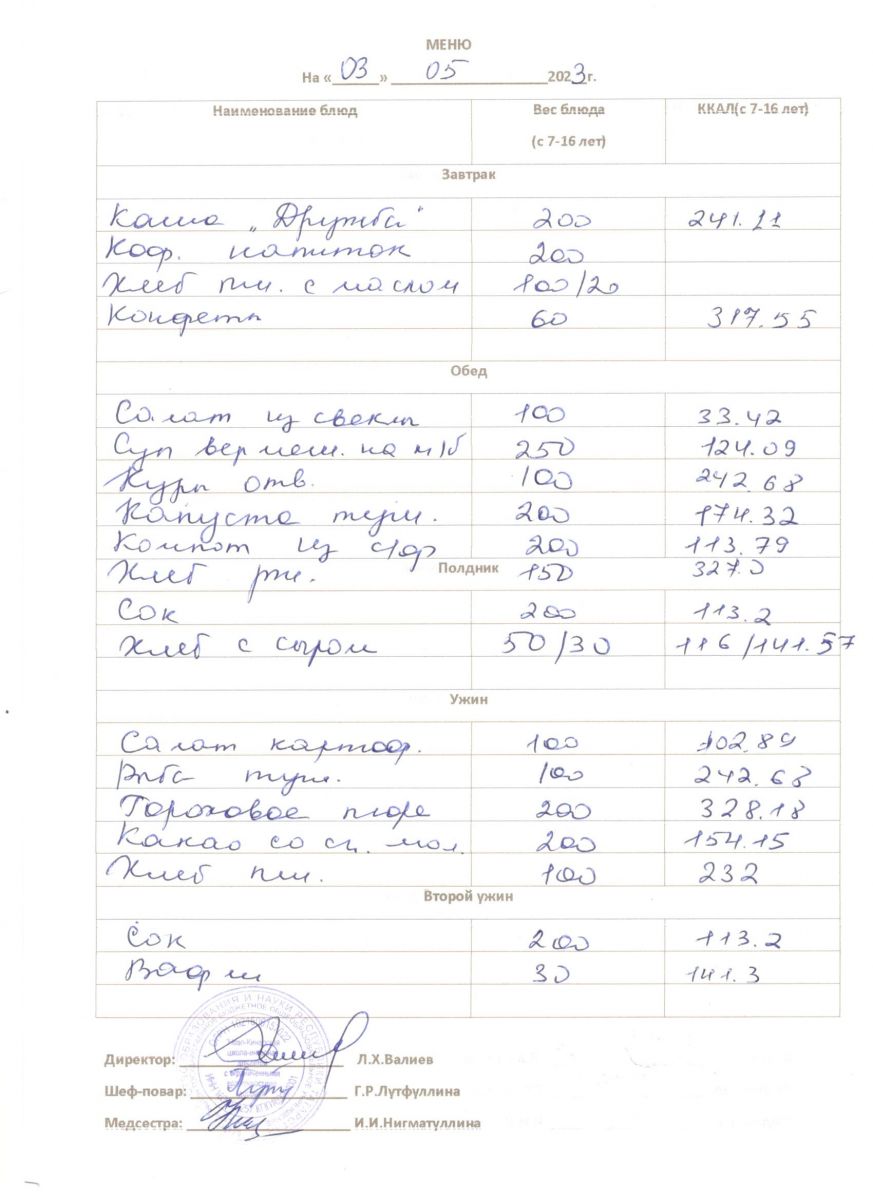 МЕНЮ
На «03» 05 2023г.
Наименование блюд Вес блюда (с 7-16 лет) ККАЛ(с 7-16 лет)
Завтрак
Каша „Дружба" 200 241.11
Коф. напиток 200
Хлеб пш. с маслом 100/20
Конфеты 60 317.55
Обед
Салат из свеклы 100 33.42
Суп вермиш. на м/б 250 124.09
Куры отв. 100 242.68
Капуста туш. 200 174.32
Компот из с/ф 200 113.79
Хлеб рж. 150 327.0
Полдник
Сок 200 113.2
Хлеб с сыром 50/30 116/141.57
Ужин
Салат картоф. 100 102.89
Рыба туш. 100 242.68
Гороховое пюре 200 328.18
Какао со сг. мол. 200 154.15
Хлеб пш. 100 232
Второй ужин
Сок 200 113.2
Вафли 30 141.3
Директор: Л.Х.Валиев
Шеф-повар: Г.Р.Лутфуллина
Медсестра: И.И.Нигматуллина